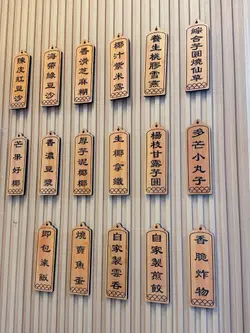 陳皮紅豆沙
海帶綠豆沙
香滑芝麻糊
椰汁紫米露
養生桃膠雪燕
綜合芋圓燒仙草
芒果好椰
香濃豆漿
厚芋泥椰椰
生椰拿鐵
楊枝甘露芋圓
多芒小丸子
即包粢飯
燒賣魚蛋
自家製雲吞
自家製煎餃
香脆炸物